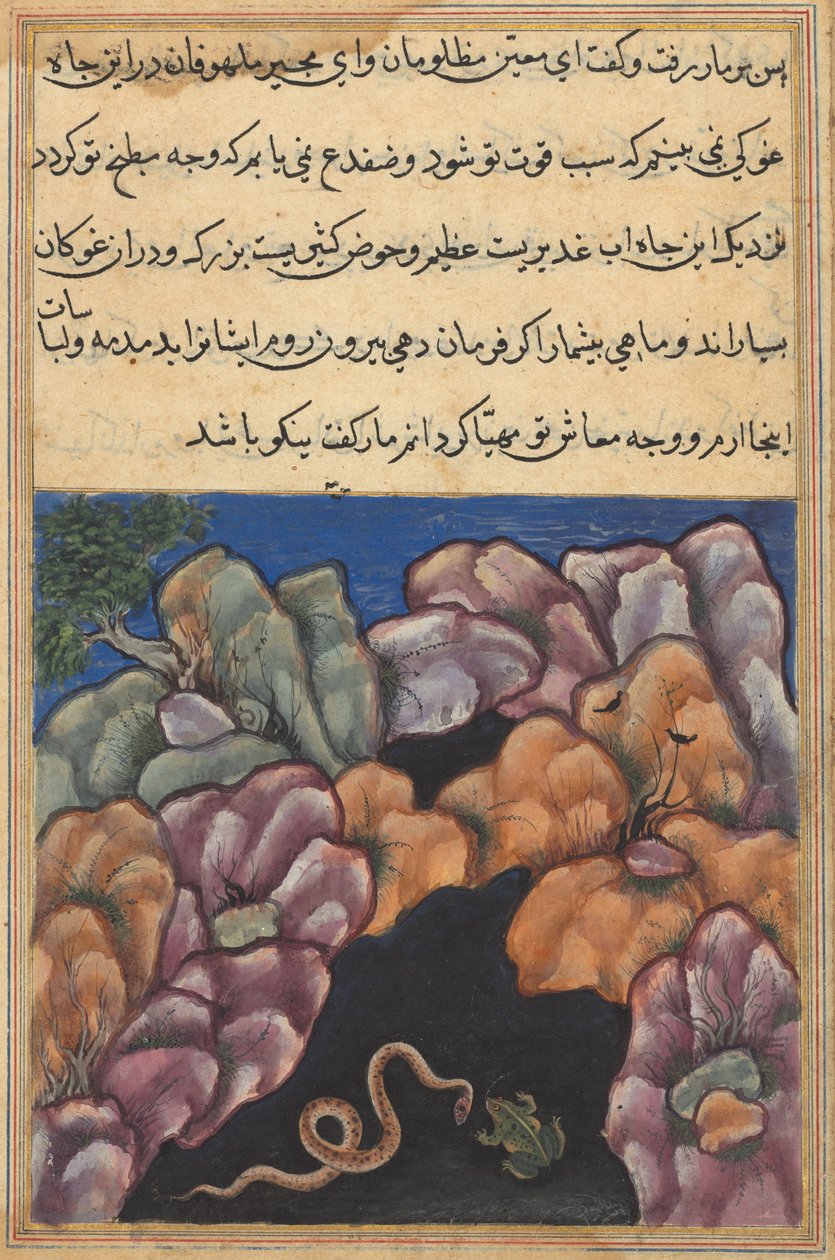 پس بر مار رفت و کفت ای معیّن مظلومان وای مجیر ملهوفان در این جاه
غوکی نمی بینم که سبب قوت تو شود و ضفدع نمی یابم که وجه مطبخ تو کردد
نزدیک این جاه اب غدیریست عظیم و حوض کثیریست بزرک و دران غوکان
بسیاراند و ماهی بیشمار اکر فرمان دهی بیرون روم ایشانرا بدمدمه و لباسات
اینجا ارم و وجه معاش تو مهیّا کردانم مار کفت نیکو باشد